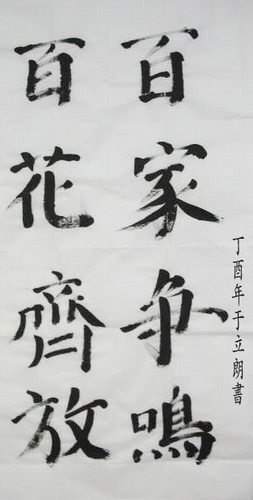 百花齊放
百家争鳴
丁酉年于立朗書